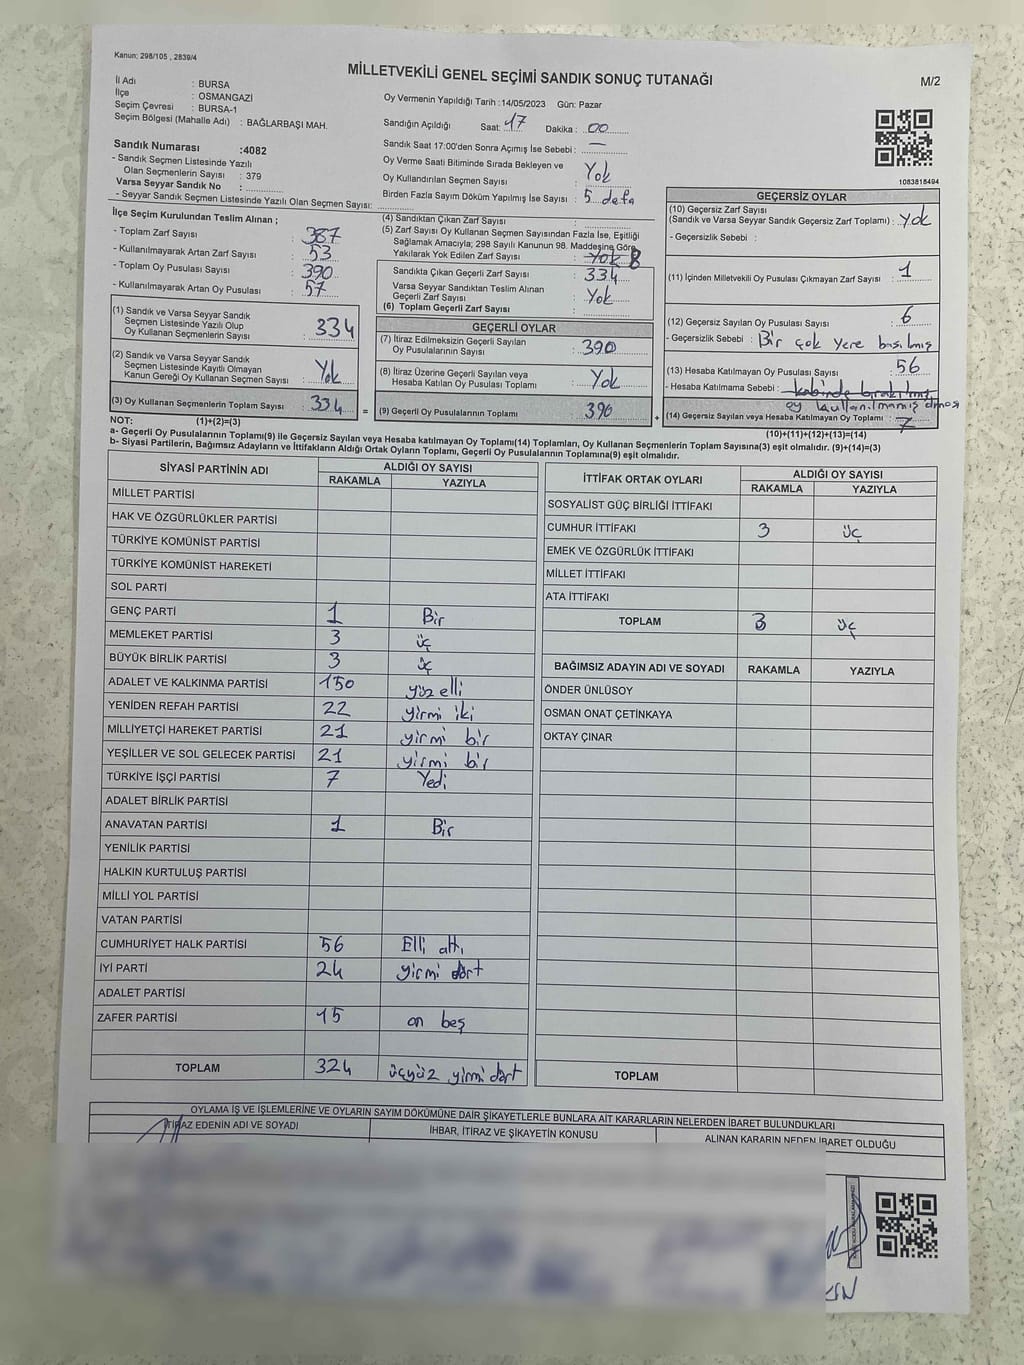 Kanun: 298/105 , 2839/4
MİLLETVEKİLİ GENEL SEÇİMİ SANDIK SONUÇ TUTANAĞI
M/2
İl Adı : BURSA
İlçe : OSMANGAZİ
Seçim Çevresi : BURSA-1
Seçim Bölgesi (Mahalle Adı) : BAĞLARBAŞI MAH.
Sandık Numarası :4082
- Sandık Seçmen Listesinde Yazılı
Olan Seçmenlerin Sayısı : 379
Varsa Seyyar Sandık No :
- Seyyar Sandık Seçmen Listesinde Yazılı Olan Seçmen Sayısı:
Oy Vermenin Yapıldığı Tarih :14/05/2023 Gün: Pazar
Sandığın Açıldığı Saat: 17 Dakika : 00
Sandık Saat 17:00'den Sonra Açımış İse Sebebi : —
Oy Verme Saati Bitiminde Sırada Bekleyen ve
Oy Kullandırılan Seçmen Sayısı : Yok
Birden Fazla Sayım Döküm Yapılmış İse Sayısı : 5 defa
1083818494
İlçe Seçim Kurulundan Teslim Alınan ;
- Toplam Zarf Sayısı : 387
- Kullanılmayarak Artan Zarf Sayısı : 53
- Toplam Oy Pusulası Sayısı : 390
- Kullanılmayarak Artan Oy Pusulası : 57
(1) Sandık ve Varsa Seyyar Sandık
Seçmen Listesinde Yazılı Olup
Oy Kullanan Seçmenlerin Sayısı : 334
(2) Sandık ve Varsa Seyyar Sandık
Seçmen Listesinde Kayıtlı Olmayan
Kanun Gereği Oy Kullanan Seçmen Sayısı : Yok
(3) Oy Kullanan Seçmenlerin Toplam Sayısı : 334 =
(4) Sandıktan Çıkan Zarf Sayısı :
(5) Zarf Sayısı Oy Kullanan Seçmen Sayısından Fazla İse, Eşitliği
Sağlamak Amacıyla; 298 Sayılı Kanunun 98. Maddesine Göre
Yakılarak Yok Edilen Zarf Sayısı : Yok
Sandıkta Çıkan Geçerli Zarf Sayısı : 334
Varsa Seyyar Sandıktan Teslim Alınan
Geçerli Zarf Sayısı : Yok
(6) Toplam Geçerli Zarf Sayısı :
GEÇERLİ OYLAR
(7) İtiraz Edilmeksizin Geçerli Sayılan
Oy Pusulalarının Sayısı : 390
(8) İtiraz Üzerine Geçerli Sayılan veya
Hesaba Katılan Oy Pusulası Toplamı : Yok
(9) Geçerli Oy Pusulalarının Toplamı : 390 +
GEÇERSİZ OYLAR
(10) Geçersiz Zarf Sayısı
(Sandık ve Varsa Seyyar Sandık Geçersiz Zarf Toplamı) : Yok
- Geçersizlik Sebebi :
(11) İçinden Milletvekili Oy Pusulası Çıkmayan Zarf Sayısı : 1
(12) Geçersiz Sayılan Oy Pusulası Sayısı : 6
- Geçersizlik Sebebi : Bir çok yere basılmış
(13) Hesaba Katılmayan Oy Pusulası Sayısı : 56
- Hesaba Katılmama Sebebi : kabinde bırakılmış
oy kullanılmamış olması
(14) Geçersiz Sayılan veya Hesaba Katılmayan Oy Toplamı : 7
NOT: (1)+(2)=(3)
(10)+(11)+(12)+(13)=(14)
a- Geçerli Oy Pusulalarının Toplamı(9) ile Geçersiz Sayılan veya Hesaba katılmayan Oy Toplamı(14) Toplamları, Oy Kullanan Seçmenlerin Toplam Sayısına(3) eşit olmalıdır. (9)+(14)=(3)
b- Siyasi Partilerin, Bağımsız Adayların ve İttifakların Aldığı Ortak Oyların Toplamı, Geçerli Oy Pusulalarının Toplamına(9) eşit olmalıdır.
SİYASİ PARTİNİN ADI ALDIĞI OY SAYISI
RAKAMLA YAZIYLA
MİLLET PARTİSİ
HAK VE ÖZGÜRLÜKLER PARTİSİ
TÜRKİYE KOMÜNİST PARTİSİ
TÜRKİYE KOMÜNİST HAREKETİ
SOL PARTİ
GENÇ PARTİ 1 Bir
MEMLEKET PARTİSİ 3 üç
BÜYÜK BİRLİK PARTİSİ 3 üç
ADALET VE KALKINMA PARTİSİ 150 yüz elli
YENİDEN REFAH PARTİSİ 22 yirmi iki
MİLLİYETÇİ HAREKET PARTİSİ 21 yirmi bir
YEŞİLLER VE SOL GELECEK PARTİSİ 21 yirmi bir
TÜRKİYE İŞÇİ PARTİSİ 7 Yedi
ADALET BİRLİK PARTİSİ
ANAVATAN PARTİSİ 1 Bir
YENİLİK PARTİSİ
HALKIN KURTULUŞ PARTİSİ
MİLLİ YOL PARTİSİ
VATAN PARTİSİ
CUMHURİYET HALK PARTİSİ 56 Elli altı
İYİ PARTİ 24 yirmi dört
ADALET PARTİSİ
ZAFER PARTİSİ 15 on beş
TOPLAM 324 üçyüz yirmi dört
İTTİFAK ORTAK OYLARI ALDIĞI OY SAYISI
RAKAMLA YAZIYLA
SOSYALİST GÜÇ BİRLİĞİ İTTİFAKI
CUMHUR İTTİFAKI 3 üç
EMEK VE ÖZGÜRLÜK İTTİFAKI
MİLLET İTTİFAKI
ATA İTTİFAKI
TOPLAM 3 üç
BAĞIMSIZ ADAYIN ADI VE SOYADI RAKAMLA YAZIYLA
ÖNDER ÜNLÜSOY
OSMAN ONAT ÇETİNKAYA
OKTAY ÇINAR
TOPLAM
OYLAMA İŞ VE İŞLEMLERİNE VE OYLARIN SAYIM DÖKÜMÜNE DAİR ŞİKAYETLERLE BUNLARA AİT KARARLARIN NELERDEN İBARET BULUNDUKLARI
İTİRAZ EDENİN ADI VE SOYADI İHBAR, İTİRAZ VE ŞİKAYETİN KONUSU ALINAN KARARIN NEDEN İBARET OLDUĞU